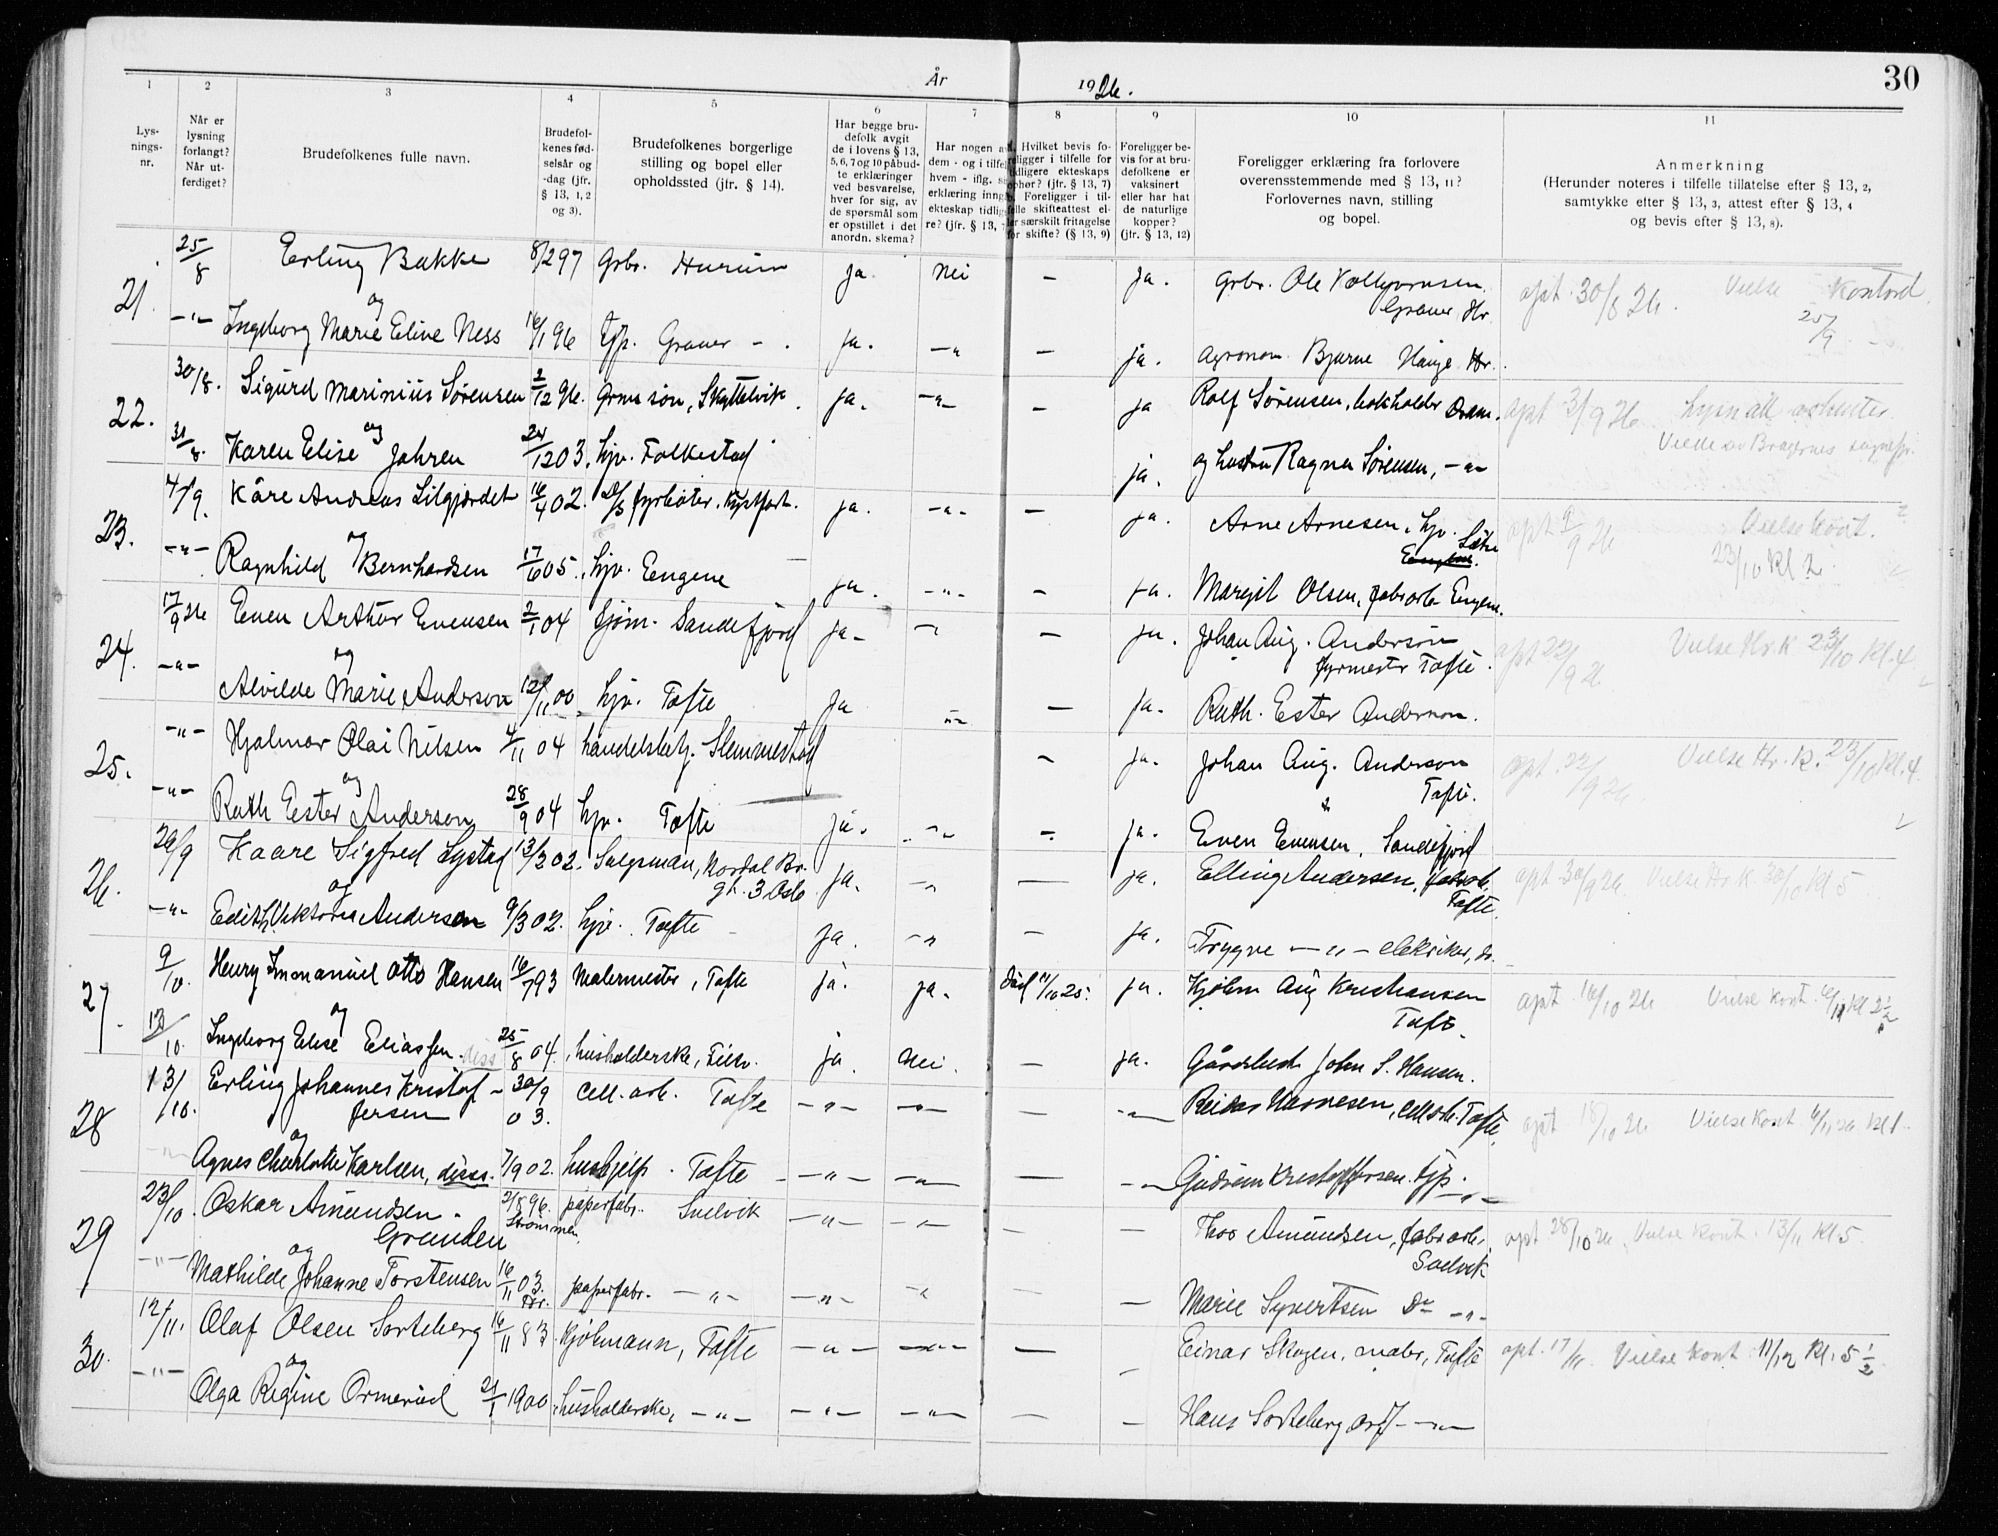 År 1926.
30
1 2 3 4 5 6 7 8 9 10 11
Lys-
nings-
nr.
Når er
lysning
forlangt?
Når ut-
ferdiget?
Brudefolkenes fulle navn.
Brudefol-
kenes fød-
selsår og
-dag (jfr.
§ 13, 1, 2
og 3).
Brudefolkenes borgerlige
stilling og bopel eller
opholdssted (jfr. § 14).
Har begge bru-
defolk avgit
de i lovens § 13,
5, 6, 7 og 10 påbud-
te erklæringer
ved besvarelse,
hver for sig, av
de spørsmål som
er opstillet i det
anordn. skema?
Har nogen a
dem - og i tilfel
hvem - iflg. s
erklæring inng
ekteskap tidlig
re? (jfr. § 13,
Hvilket bevis fo-
religger i tilfelle for
tidligere ekteskaps
ophør? (jfr. § 13, 7)
Foreligger i til-
felle skifteattest el-
ler særskilt fritagelse
for skifte? (§ 13, 9)
Foreligger be-
vis for at bru-
defolkene er
vaksinert
eller har hat
de naturlige
kopper?
(jfr. § 13, 12)
Foreligger erklæring fra forlovere
overensstemmende med § 13, 11?
Forlovernes navn, stilling
og bopel.
Anmerkning
(Herunder noteres i tilfelle tillatelse efter § 13, 2,
samtykke efter § 13, 3, attest efter § 13, 4
og bevis efter § 13, 8).
21. 25/8 Erling Bakke 8/2 97 Grbr. Hurum ja. nei — ja. Grbr. Ole
Graner Hr. opt. 30/8 26. Vielse kontord 25/9
og
—"— Ingeborg Marie Eline Ness 16/1 96 Tjp. Graner — . ja. —" — ja. agronom Bjarne Hauge Hr.
22. 30/8. Sigurd Marinius Sørensen 2/12 96. Grms søn, Skyttelvik. ja. —"— — ja Rolf Sørensen, bokholder Dram. opt 3/9 26
og
31/8. Karen Elise Jahren 24/12 03. hjv. Folkestad ja. og hustru Ragna Sørensen, —"— Vielse av Bragernes sognepr.
23. 4/9. Kåre Andreas Lilgjordet 16/4 02. D/S fyrbøter. Kystfart. ja. —"— — ja. Arne Arnesen, hjv. Sætre opt 9/9 26 Vielse kont.
23/10 Kl 2
og
—"— Ragnhild Bernhardsen 17/6 05. hjv. Engene ja. —"— — ja. Margit Olsen, fabrarb. Engene.
24. 17/9 26 Even Arthur Evensen 2/1 04 Gjøm. Sandefjord ja — —" — ja. Johan Aug. Anderson
fyrmester Tofte. opt 22/9 26 Vielse Hr. K 23/10 Kl. 4
og
—"— Alvilde Marie Anderson 12/11 00 hjv. Tofte Ja —"— — ja. Ruth Ester Anderson.
25. —"— Hjalmar Olai Nilsen 4/11 04 handelsbetj. Slemmestad — ja. Johan Aug. Anderson
Tofte. opt. 22/9 26 Vielse Hr. K. 23/10 Kl. 4.
og
—"— Ruth Ester Anderson 28/9 04 hjv. Tofte ja. —"— — ja. Even Evensen, Sandefjord
26. 29/9 Kaare Sigfred Lystad 13/2 02. Salgsmann,
gt. 3 Oslo ja. —" — ja. Elling Andersen, fabrarb.
Tofte. opt 30/9 26. Vielse Hr K 30/10 Kl 5
og
—"— Edith Viktoria Andersen 9/3 02. hjv. Tofte ja. —" — ja. Trygve —"— elektriker, do.
27. 9/10. Henry Immanuel Otto Hansen 16/7 93 Malermester, Tofte ja. ja. Død 11/10 25. ja. Kjøbm Aug Kristiansen
Tofte. opt. 16/10 26 Vielse kont. Kl 2 1/2
og
12/10. Ingeborg Elise Eliassen. diss 25/8 04. husholderske, Filtv. ja. Nei. — ja. Gårdbest. John S. Hansen.
28 13/10. Erling Johannes Kristof-
fersen 30/9
03. Cell. arb. Tofte —"— —"— — —"— Reidar Hansen, Cell. arb. Tofte. opt 18/10 26 Vielse Kont 6/11 26 Kl 1.
og
—"— Agnes Charlotte Karlsen, diss. 7/9 02. hushjelp. Tofte —"— —"— — —"— Gudrun Kristoffersen. tjp. —"—
29 23/10 Oskar Amundsen.
Grunden 2/8 96. Strømmen. papirfabr. Svelvik —"— —"— — — Thor Amundsen, fabrarb.
Svelvik opt 28/10 26. Vielse Kont. 13/11 Kl 5.
og
—"— Mathilde Johanne Torstensen 16/11 03. Hr. papirfabr. —"— —"— —" — — Marie Syvertsen Do —"—
30. 12/11. Olaf Olsen Sorteberg 16/11 83. Kjøbmann, Tofte —"— —"— — — Einar Skogen, maler, Tofte opt. 17/11 Vielse Kont 11/12 Kl. 5 1/2
og
—"— Olga Regine Ormerud 21/1 1900 husholderske, —"— —"— —"— — — Hans Sorteberg —"—